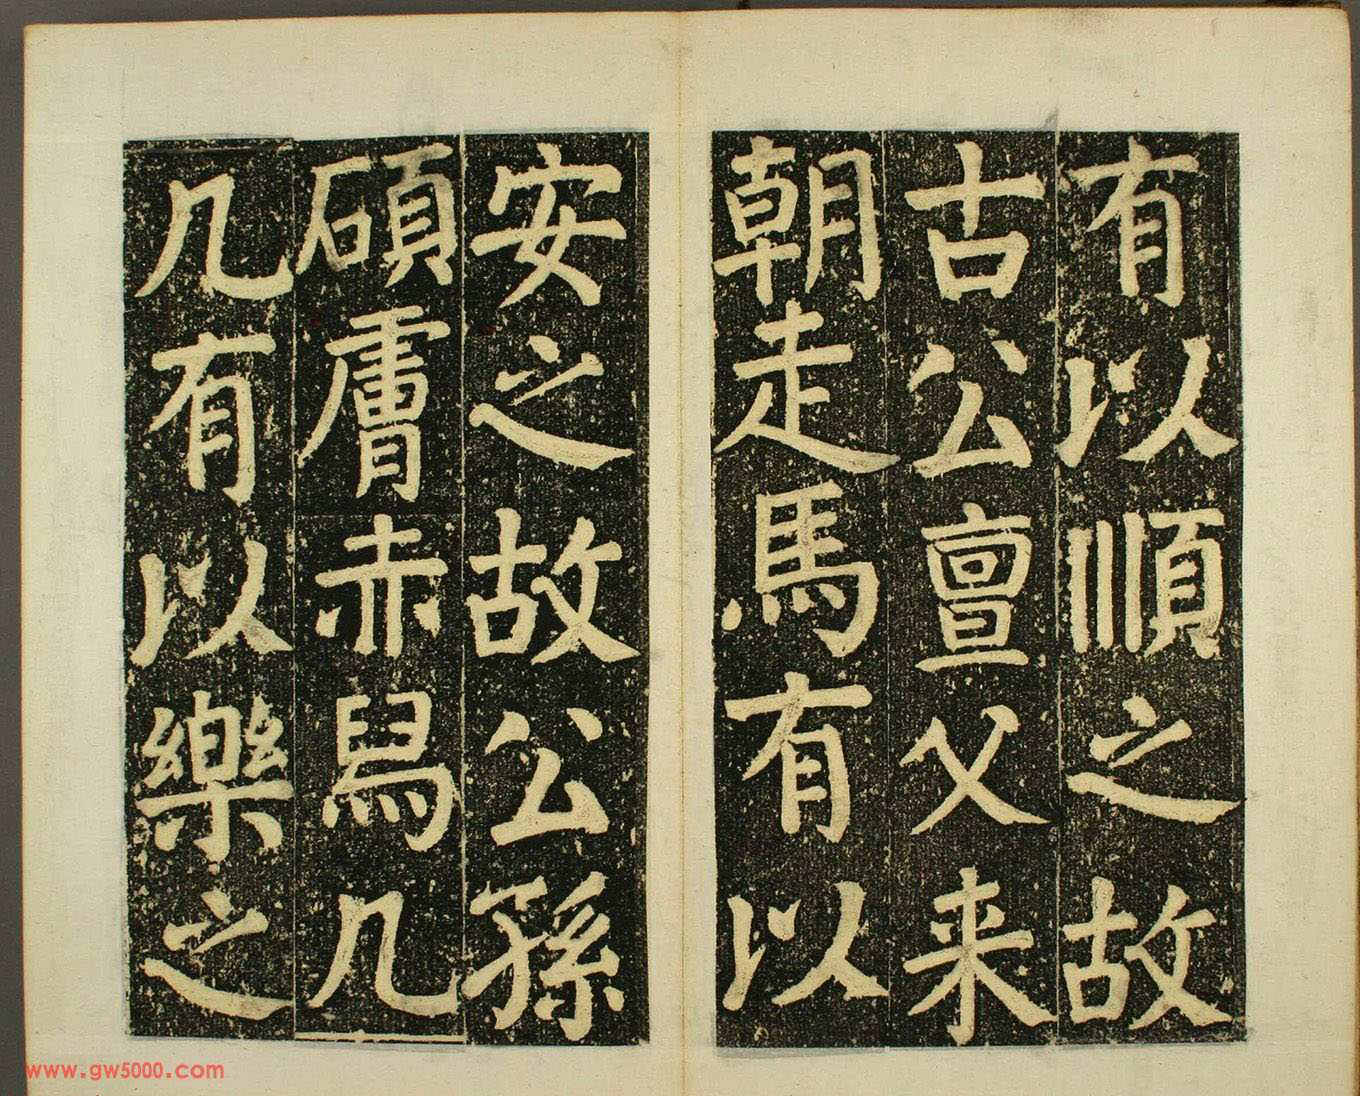 有以順之故
古公亶父来
朝走馬有以
安之故公孫
碩膚赤舄几
几有以樂之
www.gw5000.com